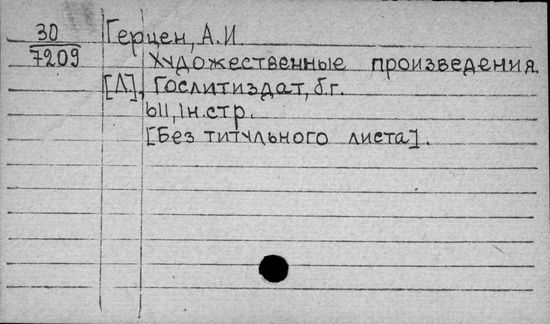 30 Герцен, А.И
7209 Художественные произведения.
[Л], Гослитиздат, б.г.
611, 1н.стр.
[Без титульного листа].